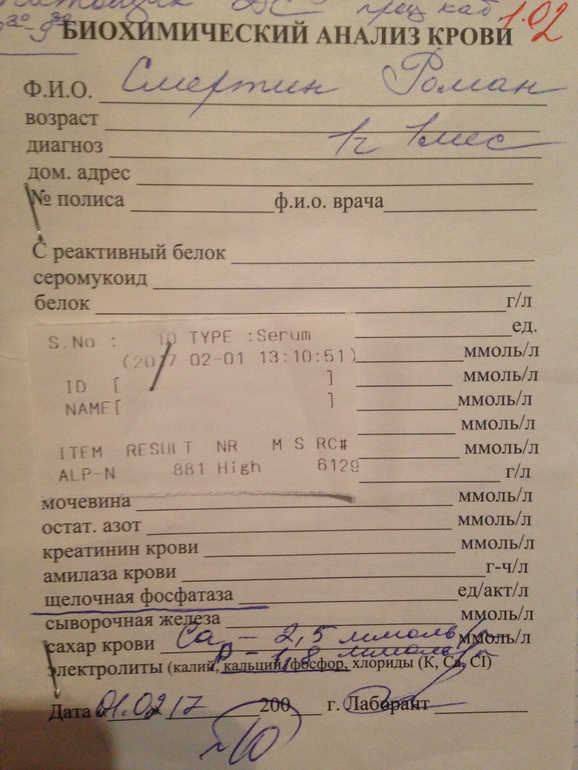 1.02
БИОХИМИЧЕСКИЙ АНАЛИЗ КРОВИ
Ф.И.О. Смертин Роман
возраст
диагноз 1г 1мес
дом. адрес
№ полиса ф.и.о. врача
С реактивный белок
серомукоид
белок г/л
ед.
S.No : 10 TYPE :Serum
(2017-02-01 13:10:51) ммоль/л
ID [ ] ммоль/л
NAME[ ] ммоль/л
ммоль/л
ITEM RESULT NR M S RC# ммоль/л
ALP-N 881 High 6129 г/л
мочевина ммоль/л
остат. азот ммоль/л
креатинин крови ммоль/л
амилаза крови г-ч/л
щелочная фосфатаза ед/акт/л
сыворочная железа ммоль/л
сахар крови Ca – 2,5 ммоль/л ммоль/л
P – 1,8 ммоль/л
электролиты (калий, кальций, фосфор, хлориды (К, Са, Cl)
Дата 01.02.17 200 г. Лаборант
№10